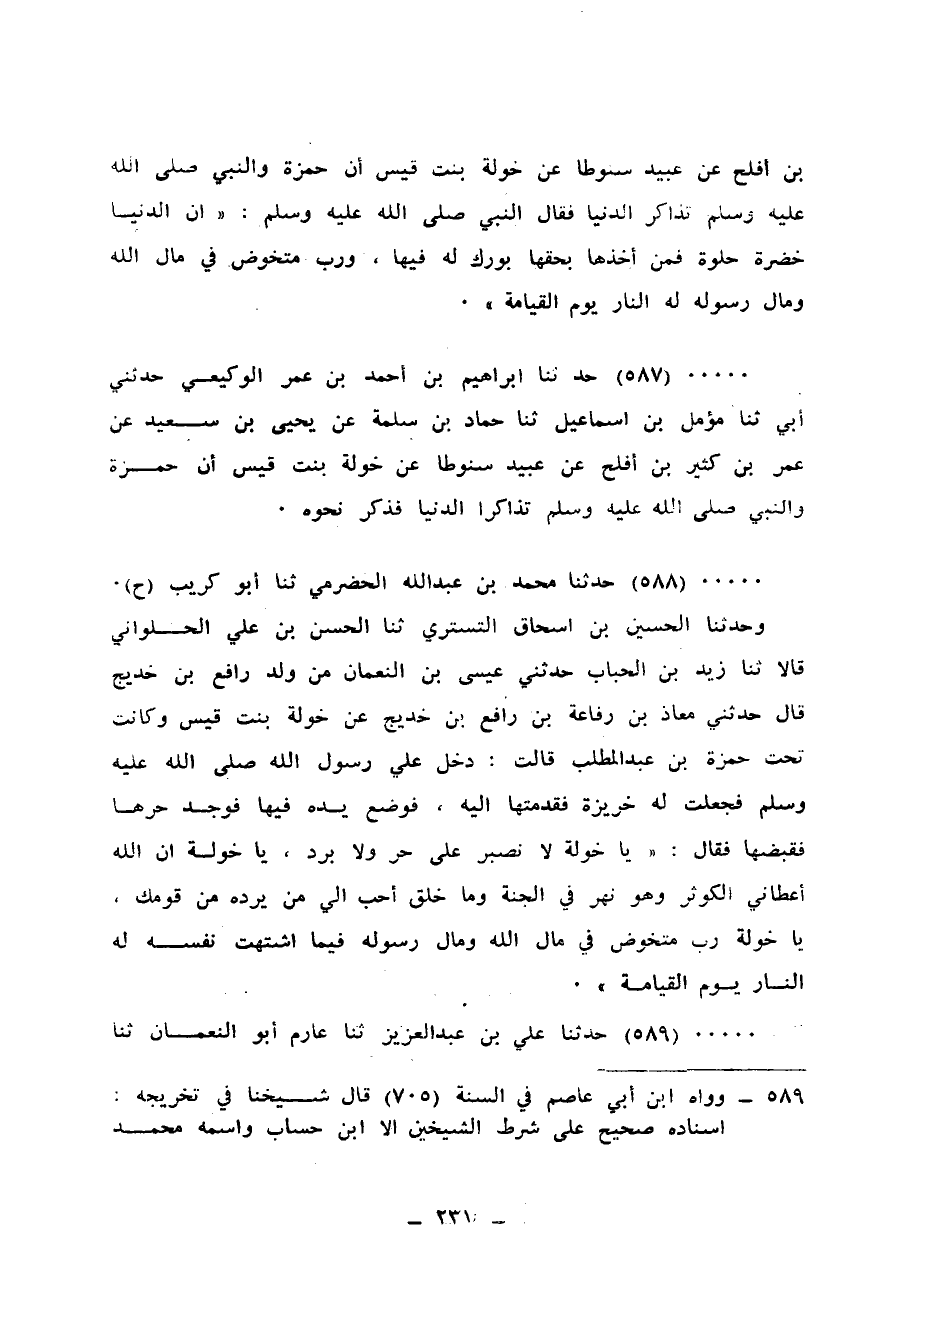 بن أفلح عن عبيد سنوطا عن خولة بنت قيس أن حمزة والنبي صلى الله
عليه وسلم تذاكر الدنيا فقال النبي صلى الله عليه وسلم : « ان الدنيـا
خضرة حلوة فمن أخذها بحقها بورك له فيها ، ورب متخوض في مال الله
ومال رسوله له النار يوم القيامة » ٠
٠٠٠٠٠ (٥٨٧) حدثنا ابراهيم بن أحمد بن عمر الوكيعـي حدثني
أبي ثنا مؤمل بن اسماعيل ثنا حماد بن سلمة عن يحيى بن سـعيد عن
عمر بن كثير بن أفلح عن عبيد سنوطا عن خولة بنت قيس أن حمـزة
والنبي صلى الله عليه وسلم تذاكرا الدنيا فذكر نحوه ٠
٠٠٠٠٠ (٥٨٨) حدثنا محمد بن عبدالله الحضرمي ثنا أبو كريب (ح)٠
وحدثنا الحسين بن اسحاق التستري ثنا الحسن بن علي الحـلواني
قالا ثنا زيد بن الحباب حدثني عيسى بن النعمان من ولد رافع بن خديج
قال حدثني معاذ بن رفاعة بن رافع بن خديج عن خولة بنت قيس وكانت
تحت حمزة بن عبدالمطلب قالت : دخل علي رسول الله صلى الله عليه
وسلم فجعلت له خريزة فقدمتها اليه ، فوضع يـده فيها فوجـد حرهـا
فقبضها فقال : « يا خولة لا نصبر على حر ولا برد ، يا خولـة ان الله
أعطاني الكوثر وهو نهر في الجنة وما خلق أحب الي من يرده من قومك ،
يا خولة رب متخوض في مال الله ومال رسوله فيما اشتهت نفسـه له
النـار يـوم القيامـة » ٠
٠٠٠٠٠ (٥٨٩) حدثنا علي بن عبدالعزيز ثنا عارم أبو النعمـان ثنا
٥٨٩ ـ ورواه ابن أبي عاصم في السنة (٧٠٥) قال شـيخنا في تخريجه :
اسناده صحيح على شرط الشيخين الا ابن حساب واسمه محمـد
ـ ٢٣١ ـ